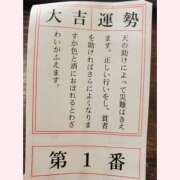 大吉運勢
天の助けによって災難はきえ
ます。正しい行いをし、貧者
を助ければさらによくなりま
すが色と酒におぼれるとわざ
わいがふえます。
第1番